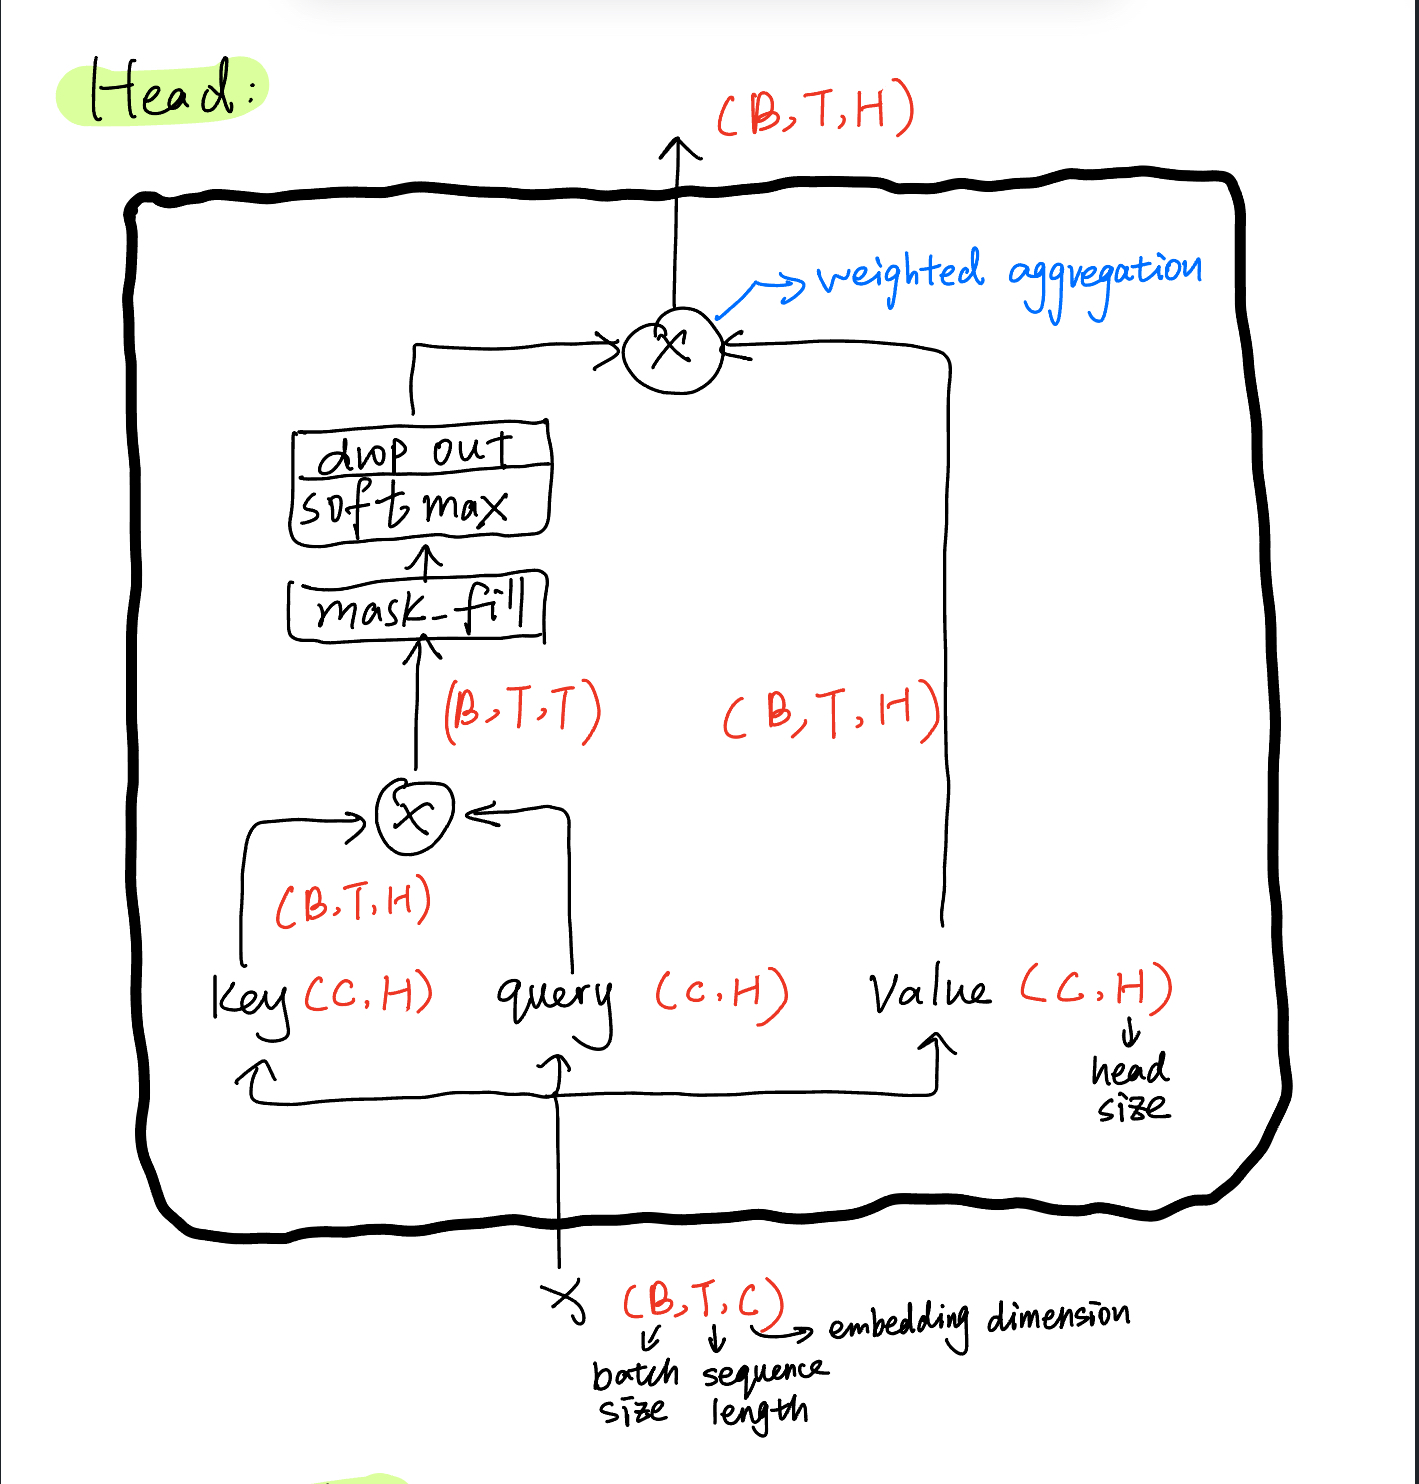 Head:
(B,T,H)
weighted aggregation
x
drop out
softmax
mask_fill
(B,T,T)
(B,T,H)
x
(B,T,H)
key (C,H)
query (C,H)
Value (C,H)
head
size
x (B,T,C)
embedding dimension
batch sequence
size length